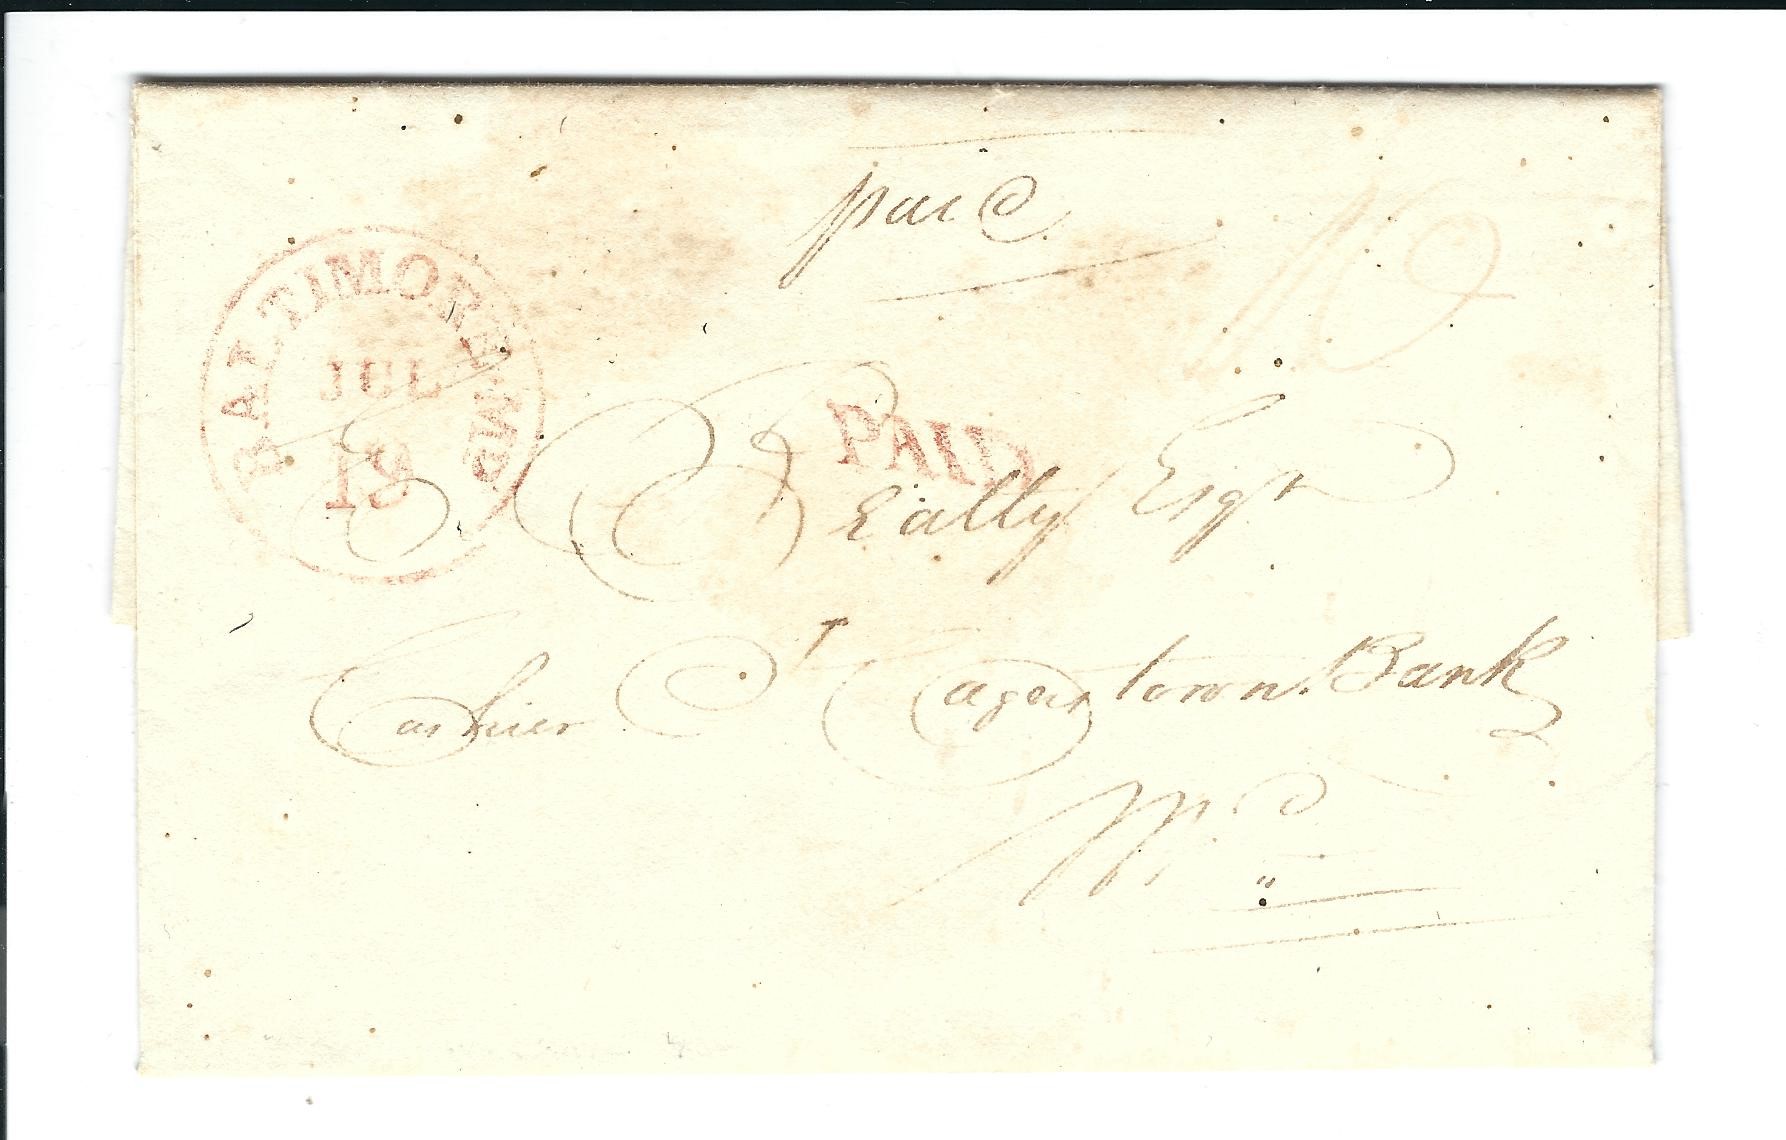 paid
10
BALTIMORE MD
JUL
19
PAID
E Beatty Esqr
Cashier Hagerstown Bank
Md